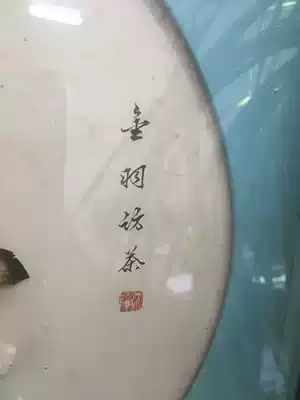 金羽访茶